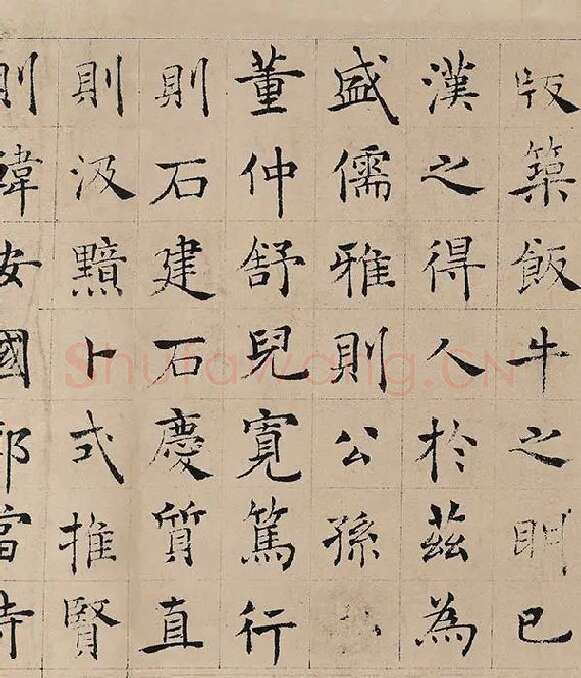 版築飯牛之朋已
漢之得人於茲為
盛儒雅則公孫
董仲舒兒寬篤行
則石建石慶質直
則汲黯卜式推賢
則韓安國鄭當時
Shufawang.CN